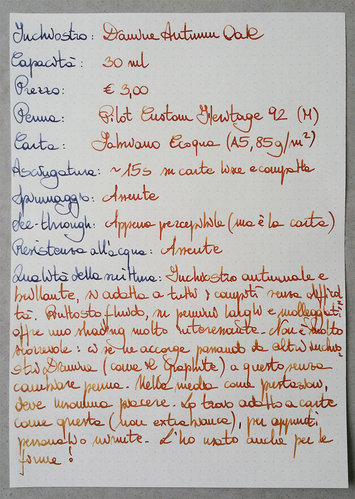 Inchiostro: Diamine Autumn Oak
Capacità: 30 ml
Prezzo: € 3,00
Penna: Pilot Custom Heritage 92 (M)
Carta: Fabriano Ecoqua (A5, 85g/m²)
Asciugatura: ~ 15s su carta lisce e compatta
Spiumaggio: Assente
See-through: Appena percepibile (ma è la carta)
Resistenza all'acqua: Assente
Qualità della scrittura: Inchiostro autunnale e
brillante, si adatta a tutti i compiti senza difficol
tà. Piuttosto fluido, su pennini larghi e molleggiati
offre uno shading molto interessante. Non è molto
scorrevole: ci se ne accorge passando da altri inchio
stri Diamine (come il Graphite) a questo senza
cambiare penna. Nella media come prestazioni,
deve insomma piacere. Lo trovo adatto a carte
come questa (non extra bianca), per appunti
personali o minute. L'ho usato anche per le
firme!